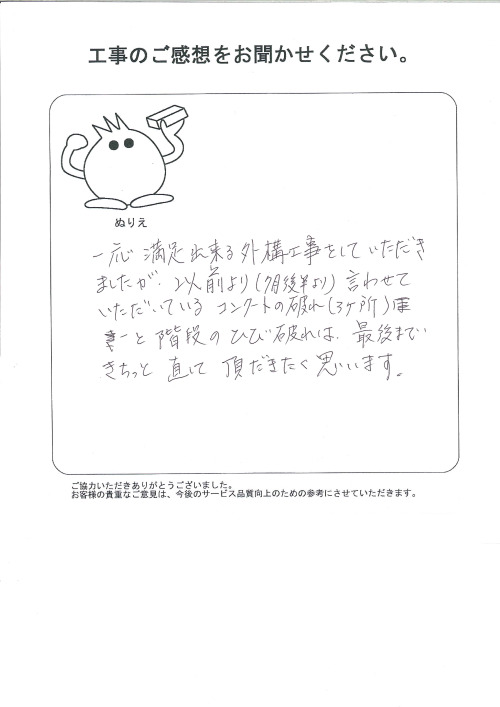 工事のご感想をお聞かせください。
ぬりえ
一応 満足出来る外構工事をしていただき
ましたが、以前より(7月後半より)言わせて
いただいている コンクートの破れ(3ヶ所)庫
と 階段のひび破れは、最後まで
きちっと 直して 頂だきたく思います。
ご協力いただきありがとうございました。
お客様の貴重なご意見は、今後のサービス品質向上のための参考にさせていただきます。